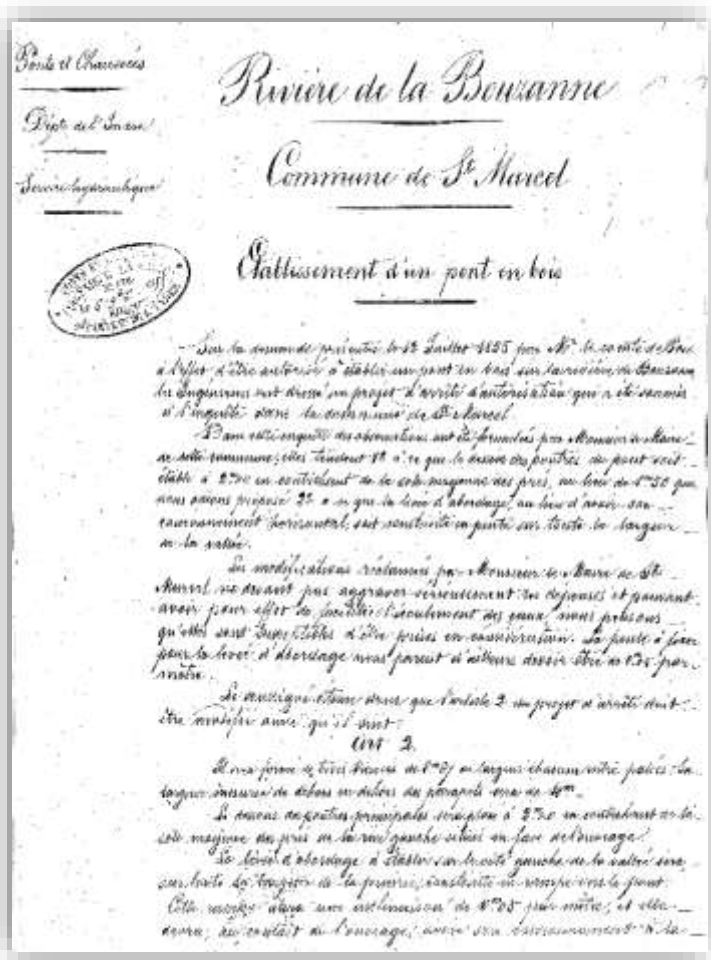 Ponts et Chaussées
Dépt. de l'Indre
Service hydraulique
Rivière de la Bouzanne
Commune de St Marcel
Etablissement d'un pont en bois
Sur la demande présentée le 12 Juillet 1855 par Mr le comte de
à l'effet d'être autorisé à établir un pont en bois sur la rivière de Bouzanne
les Ingénieurs ont dressé un projet d'arrêté d'autorisation qui a été soumis
à l'enquête dans la commune de St Marcel
Dans cette enquête des observations ont été formulées par Monsieur le Maire
de cette commune; elles tendent 1° à ce que le dessous des poutres du pont soit
établi à en contrehaut de la cote moyenne des prés, au lieu de 1m50 que
nous avions proposé 2° à ce que la levée d'abordage, au lieu d'avoir son
couronnement horizontal, soit construite en pente sur toute la largeur
de la vallée.
Les modifications réclamées par Monsieur le Maire de St
Marcel ne devant pas aggraver sérieusement les dépenses et pouvant
avoir pour effet de faciliter l'écoulement des eaux, nous pensons
qu'elles sont susceptibles d'être prises en considération. La pente à fixer
pour la levée d'abordage nous paraît d'ailleurs devoir être de par
mètre.
Le soussigné estime donc que l'article 2 du projet d'arrêté doit
être modifié ainsi qu'il suit:
Art 2.
Il sera formé de trois travées de de largeur chacune entre palées. La
largeur mesurée de dehors en dehors des parapets sera de
Le dessous des poutres principales sera placé à en contrehaut de la
cote moyenne des prés de la rive gauche situés en face de l'ouvrage.
La levée d'abordage à établir sur le côté gauche de la vallée sera
sur toute la largeur de la prairie, construite en rampe vers le pont.
Cette rampe aura une inclinaison de 0m05 par mètre, et elle
devra, au contact de l'ouvrage, avoir son couronnement à la